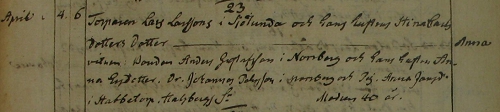 23
April. 4. 6 Torparen Lars Larssons i Sjölunda och hans hustrus Stina Lars
dotters dotter Anna
vittnen Bonden Anders Gustafsson i Norrberg och hans hustru An
na Ersdotter. Dr. Johannes Johansson i Norrberg och Pig. Anna Jansd:
i Stabbetorp Halsbergs Sn Modren 40 år.